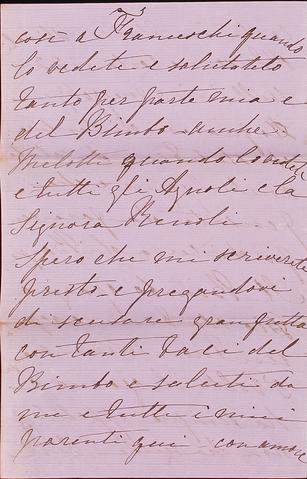 così a Franceschi quando
lo vedete e salutatelo
tanto per parte mia e
del Bimbo anche
Melotti quando lo vedete
e tutti gli Agnoli e la
Signora Renoli.
Spero che mi scriverete
presto e pregandovi
di scusare gran fretta
con tanti baci del
Bimbo e saluti da
me e tutti i miei
parenti qui con amore